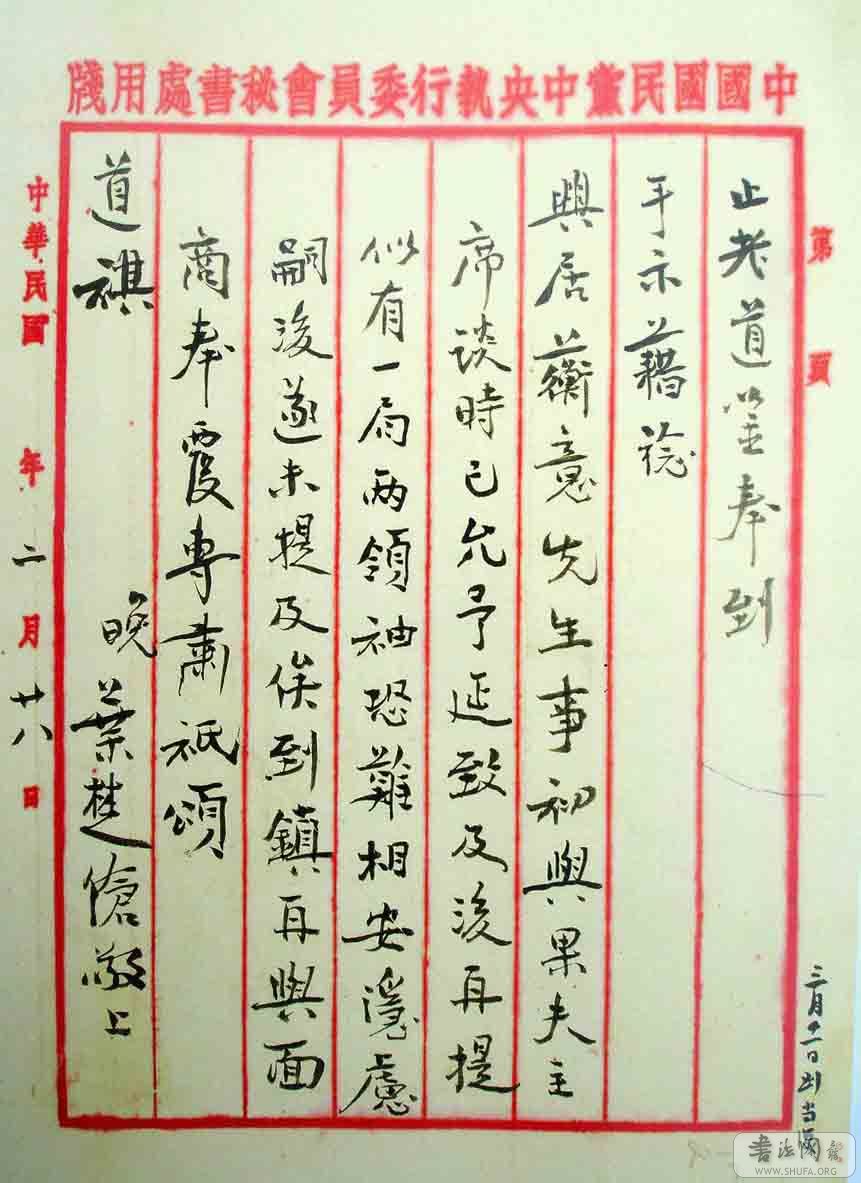 中國國民黨中央執行委員會秘書處用牋
第 頁
止老道鑒奉到
手示藉稔
興居蘅意先生事初與果夫主
席談時已允予延致及後再提
似有一局两領袖恐難相安隱慮
嗣後遂未提及俟到鎮再與面
商奉覆專肅祇頌
道祺
晚葉楚傖敬上
中華民國 年二月廿八日
三月十一日到
書法網
WWW.SHUFA.ORG